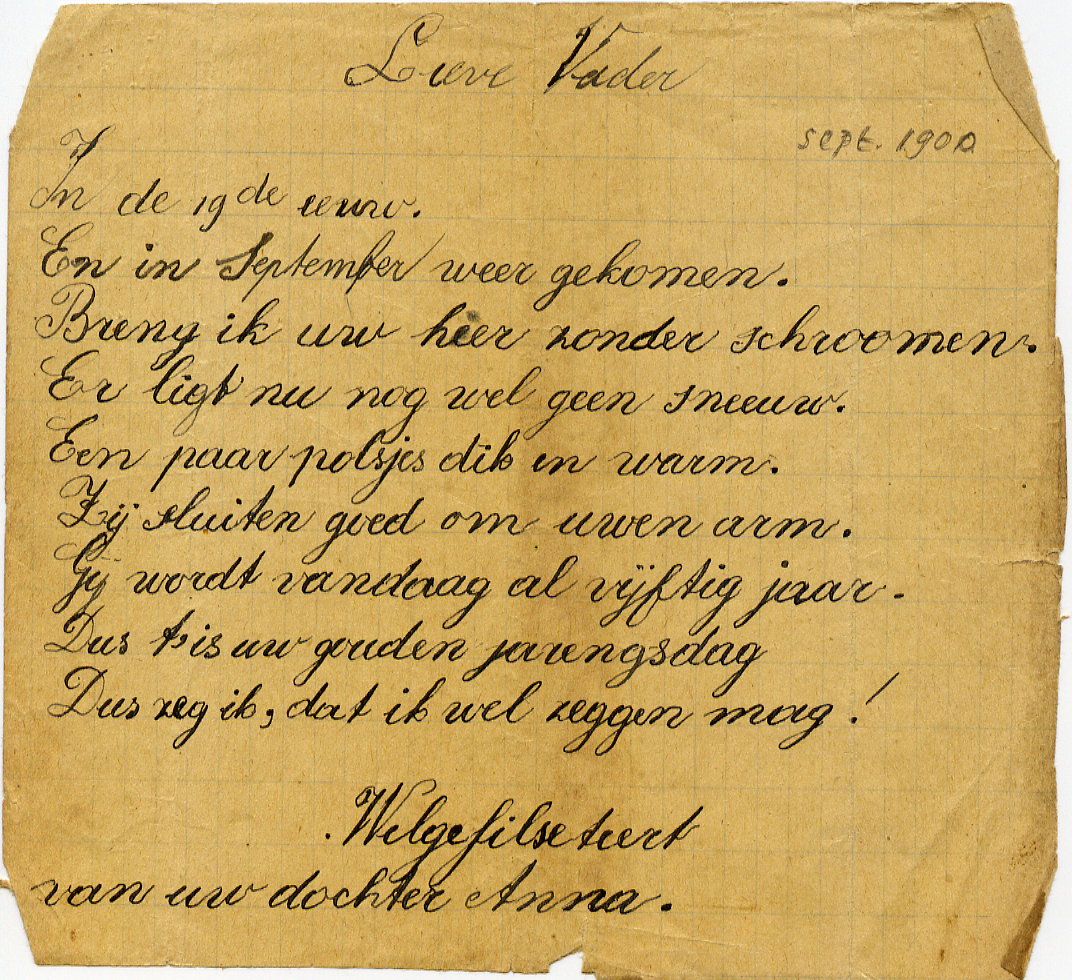 Lieve Vader
sept. 1900
In de 19de eeuw.
En in September weer gekomen.
Breng ik uw heer zonder schroomen.
Er ligt nu nog wel geen sneeuw.
Een paar polsjes dik en warm.
Zij sluiten goed om uwen arm.
Gij wordt vandaag al vijftig jaar.
Dus t is uw gouden jarengsdag
Dus zeg ik, dat ik wel zeggen mag!
Welgefilseteert
van uw dochter Anna.